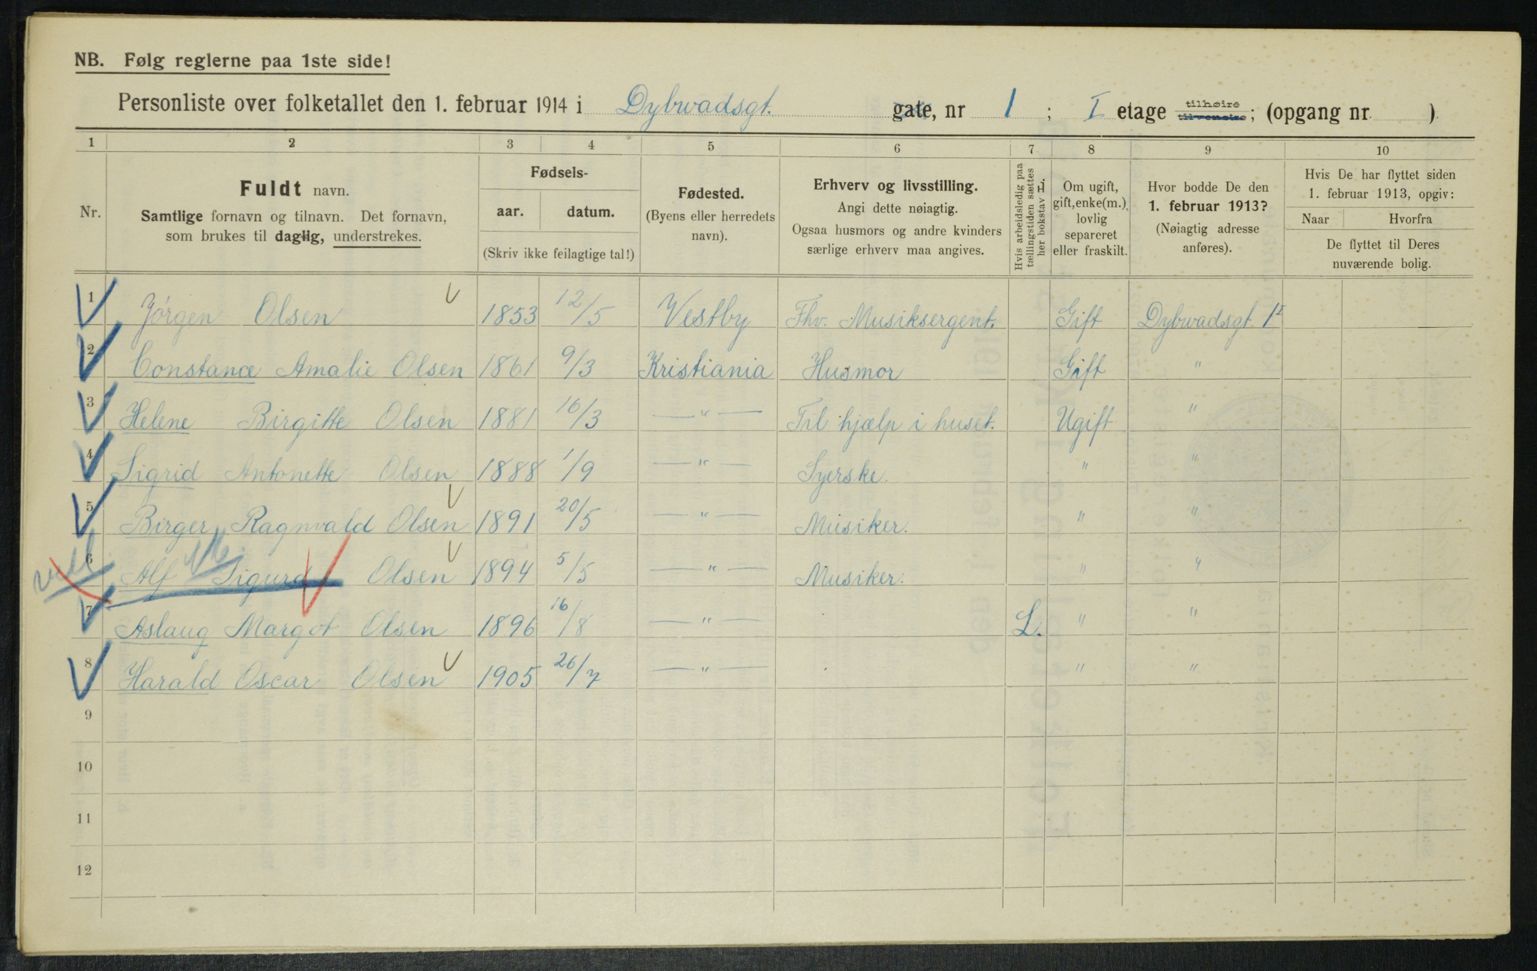 NB. Følg reglerne paa 1ste side!
Personliste over folketallet den 1. februar 1914 i Dybwadsgt. gate, nr 1 ; I etage tilhøire tilvenstre; (opgang nr )
1 2 3 4 5 6 7 8 9 10
Nr.
Fuldt navn.
Samtlige fornavn og tilnavn. Det fornavn,
som brukes til daglig, understrekes.
Fødsels-
aar. datum.
(Skriv ikke feilagtige tal!)
Fødested.
(Byens eller herredets
navn).
Erhverv og livsstilling.
Angi dette nøiagtig.
Ogsaa husmors og andre kvinders
særlige erhverv maa angives.
Hvis arbeidsledig paa
tællingstiden sættes
her bokstav L.
Om ugift,
gift, enke(m.),
lovlig
separeret
eller fraskilt.
Hvor bodde De den
1. februar 1913?
(Nøiagtig adresse
anføres).
Hvis De har flyttet siden
1. februar 1913, opgiv:
Naar Hvorfra
De flyttet til Deres
nuværende bolig.
1 Jörgen Olsen 1853 12/5 Vestby Fhv. Musiksergent. Gift Dybwadsgt. 1 I
2 Constance Amalie Olsen 1861 9/3 Kristiania Husmor Gift "
3 Helene Birgitte Olsen 1881 16/3 — " — Til hjælp i huset. Ugift "
4 Sigrid Antonette Olsen 1888 1/9 — " — Syerske. " "
5 Birger Ragnvald Olsen 1891 20/5 — " — Musiker. " "
6 Alf Sigurd Olsen 1894 5/5 — " — Musiker. " "
7 Aslaug Margot Olsen 1896 16/8 — " — L. " "
8 Harald Oscar Olsen 1905 26/7 — " — " "
9
10
11
12